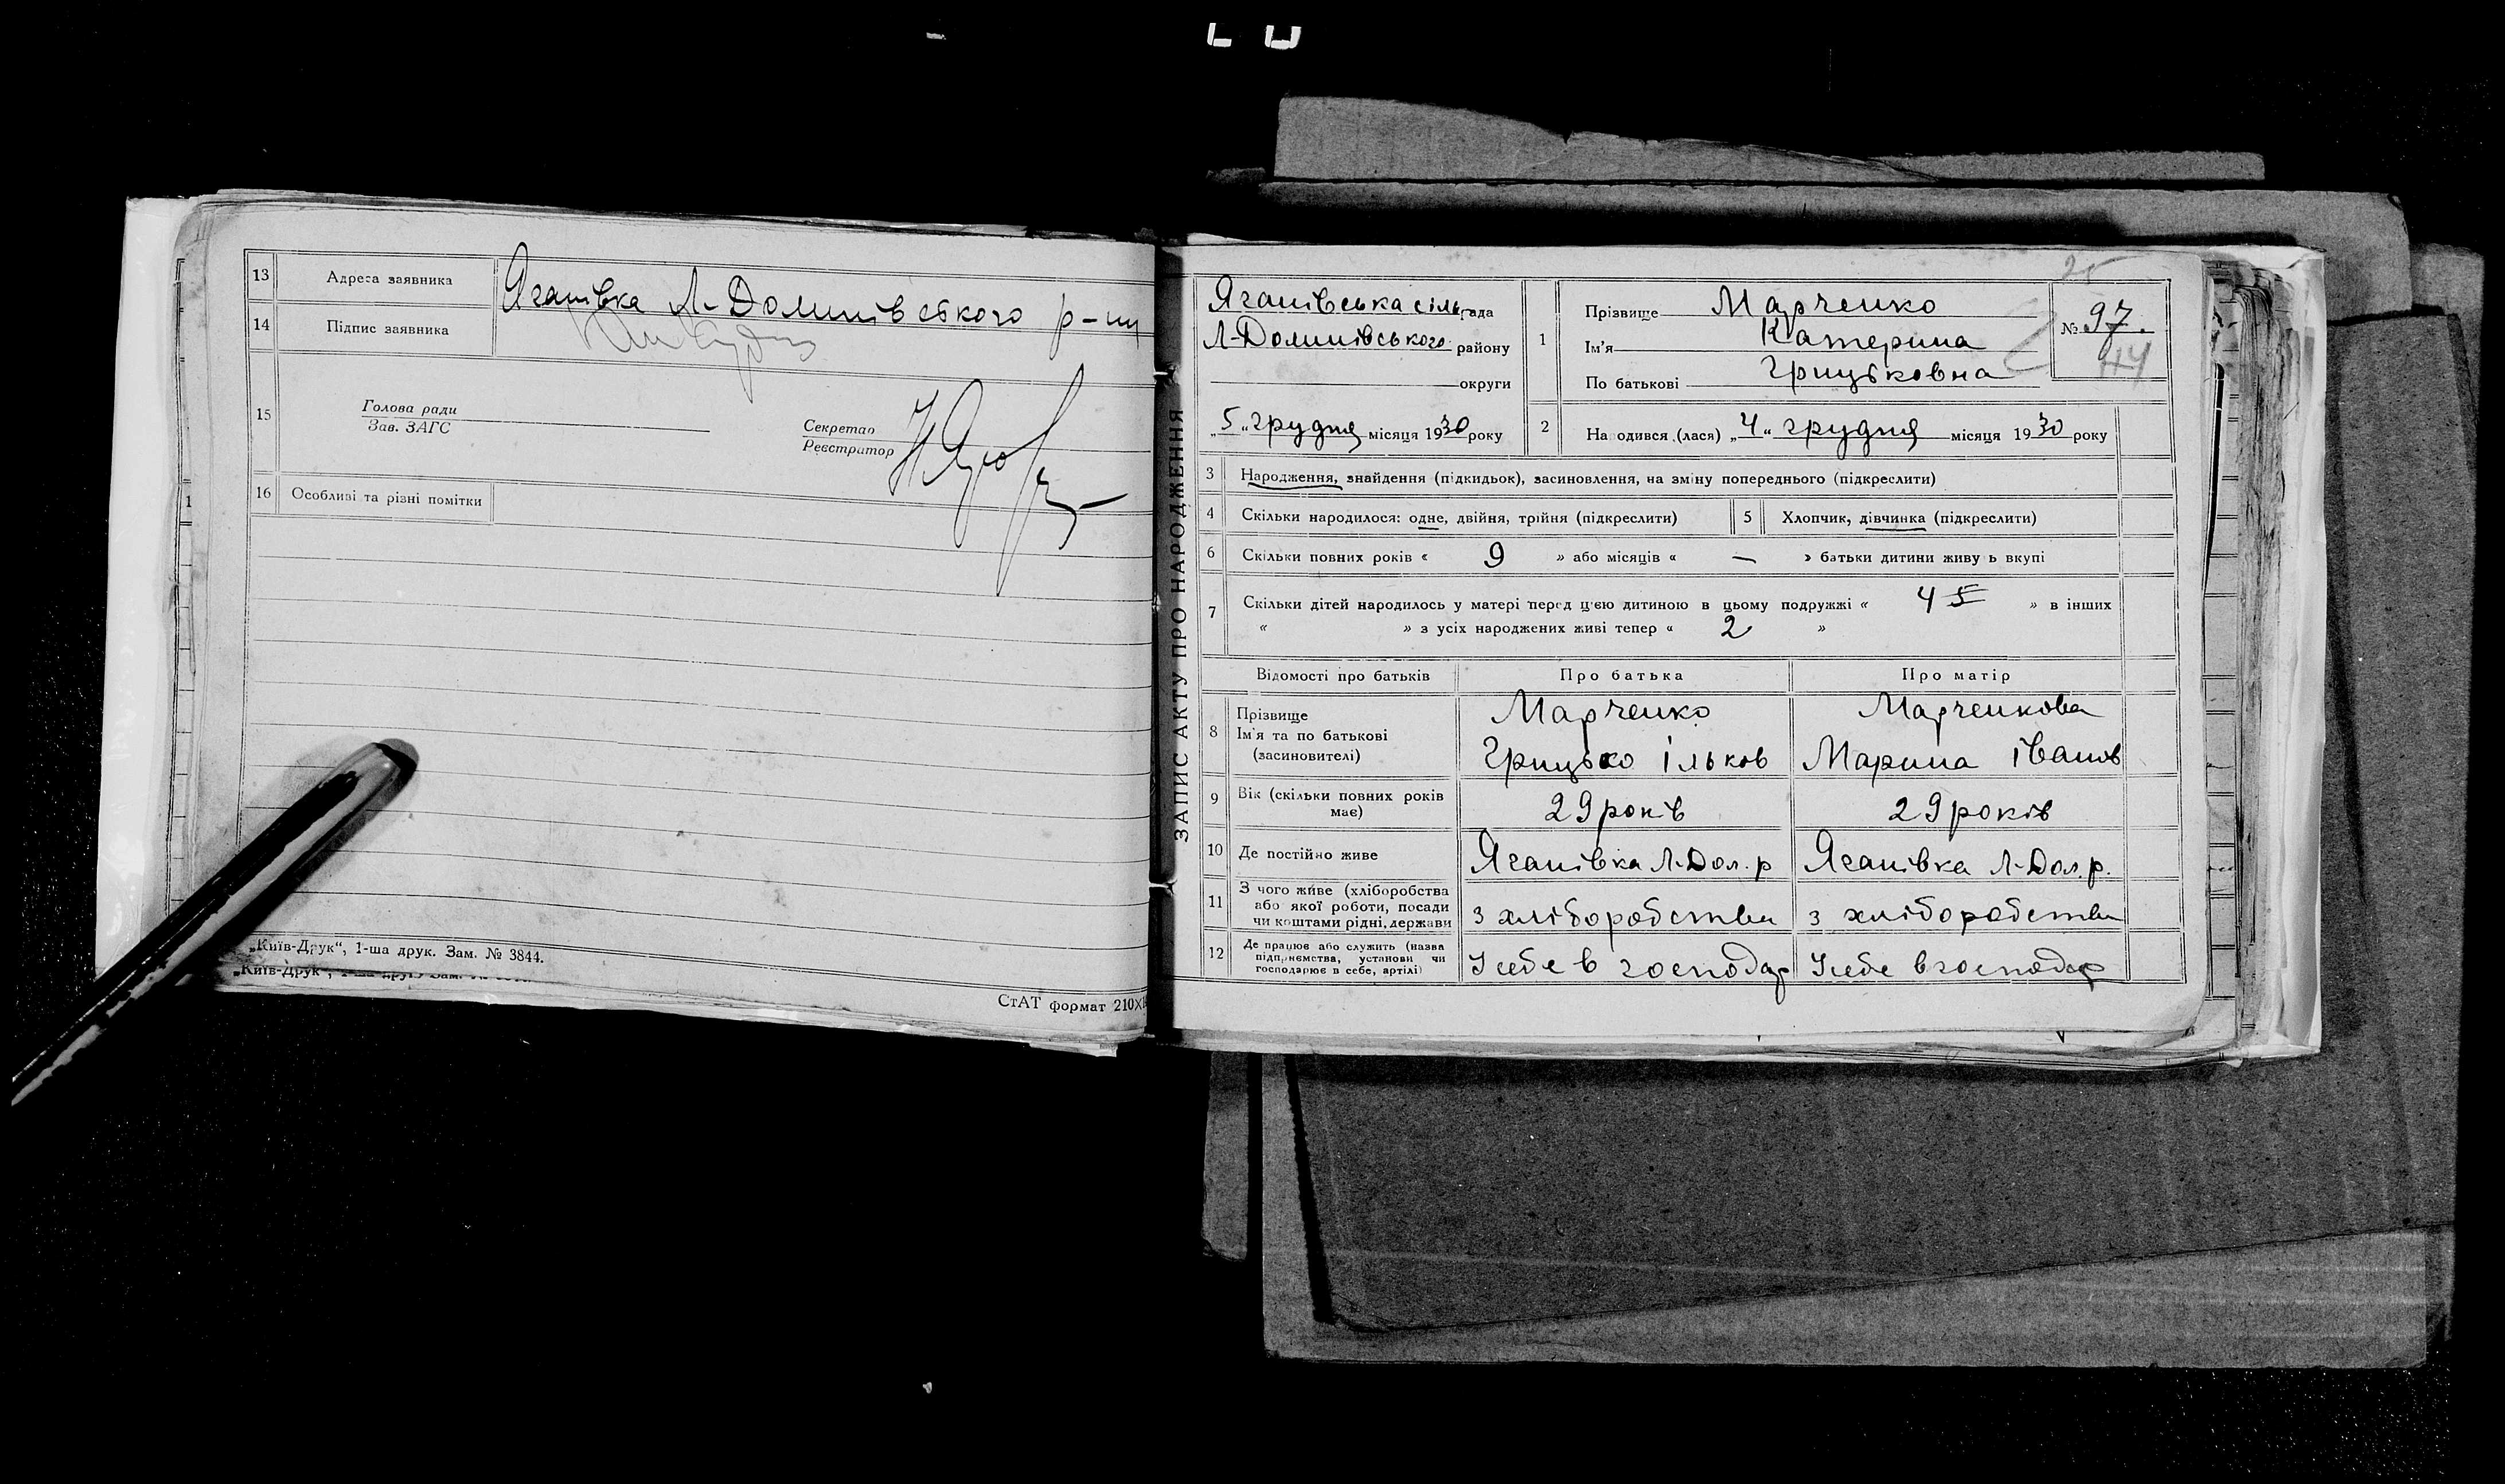 13 Адреса заявника Яганівка Л-Долинівського р-ну
14 Підпис заявника
15 Голова ради
Зав. ЗАГС
Секретар
Реєстратор
16 Особливі та різні помітки
„Київ-Друк“, 1-ша друк. Зам. № 3844.
„Київ-Друк“, 1-ша друк. Зам. №
СтАТ формат 210×
ЗАПИС АКТУ ПРО НАРОДЖЕННЯ
25
Яганівська сільрада
Л-Долинівського району
округи
„5„ грудня місяця 1930 року
1 Прізвище Марченко
Ім'я Катерина
По батькові Грицьковна
№ 97.
44
2 Народився (лася) „4„ грудня місяця 1930 року
3 Народження, знайдення (підкидьок), засиновлення, на зміну попереднього (підкреслити)
4 Скільки народилося: одне, двійня, трійня (підкреслити) 5 Хлопчик, дівчинка (підкреслити)
6 Скільки повних років « 9 » або місяців « — » батьки дитини живуть вкупі
7 Скільки дітей народилось у матері перед цією дитиною в цьому подружжі « 4 5 » в інших
« » з усіх народжених живі тепер « 2 »
Відомості про батьків Про батька Про матір
8 Прізвище Марченко Марченкова
Ім'я та по батькові
(засиновителі) Грицько Ільков Марина Іванів
9 Вік (скільки повних років має) 29 років 29 років
10 Де постійно живе Яганівка Л-Дол. р Яганівка Л-Дол. р.
11 З чого живе (хліборобства
або якої роботи, посади
чи коштами рідні, держави з хліборобства з хліборобства
12 Де працює або служить (назва
підприємства, установи чи
господарює в себе, артілі) У себе в господар У себе в господар